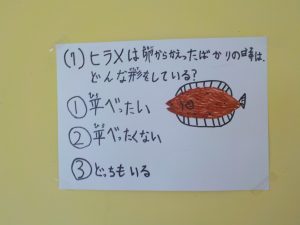 (1) ヒラメは卵からかえったばかりの時は、
どんな形をしている?
① 平べったい
② 平べったくない
③ どっちもいる